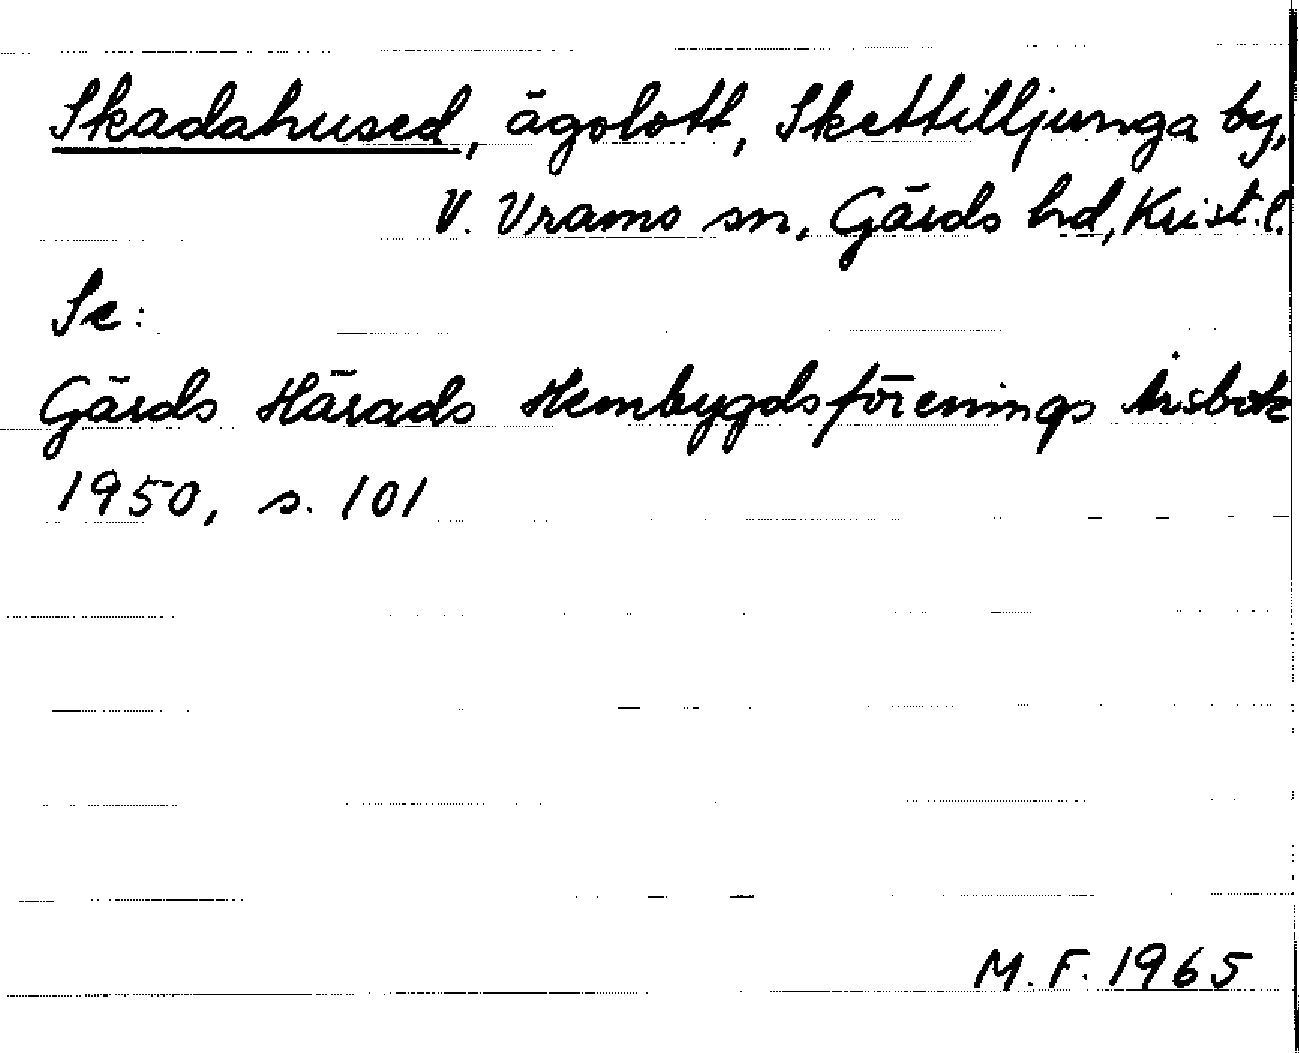 Skadahused, ägolott, Skettilljunga by,
V. Vrams sn, Gärds hd, Krist. l.
Se:
Gärds Härads Hembygdsförenings Årsbok
1950, s. 101
M.F. 1965